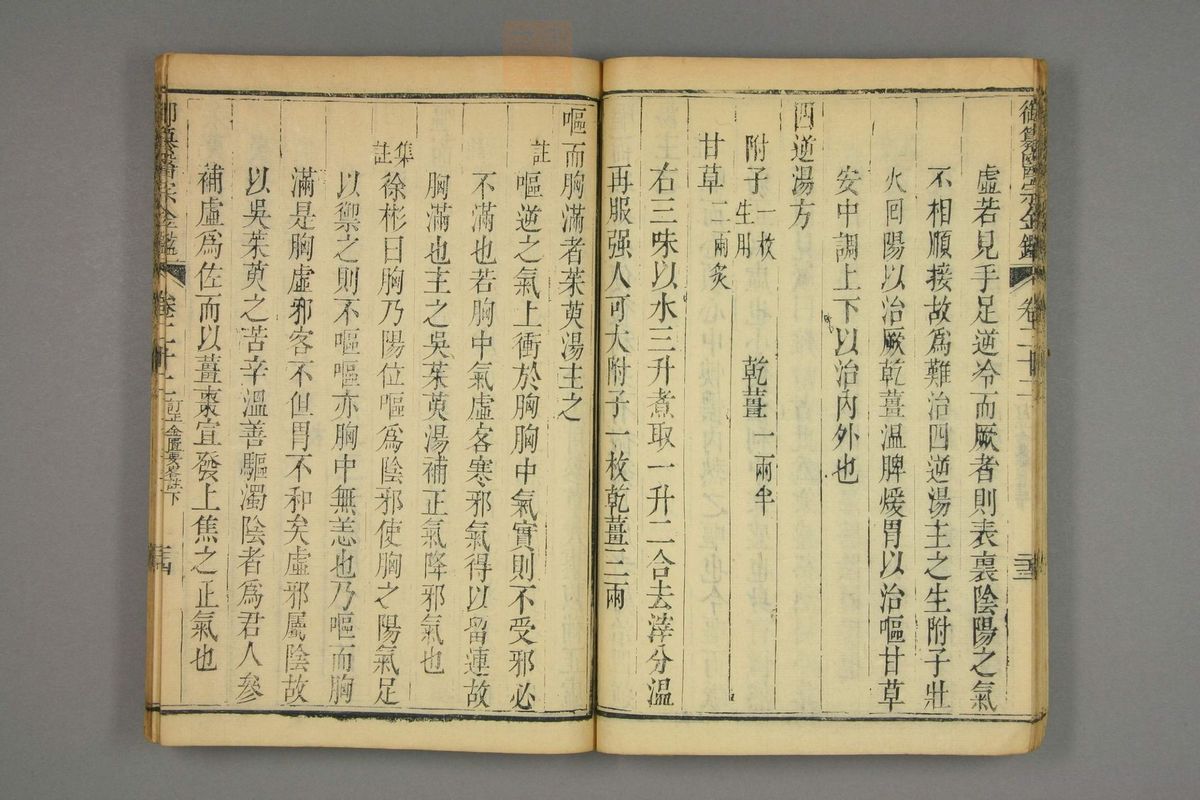 御纂醫宗金鑑 卷二十二 二十三
虛若見手足逆冷而厥者則表裏陰陽之氣
不相順接故爲難治四逆湯主之生附子壯
火回陽以治厥乾薑溫脾煖胃以治嘔甘草
安中調上下以治內外也
四逆湯方
附子一枚生用 乾薑一兩半
甘草二兩炙
右三味以水三升煮取一升二合去滓分溫
再服强人可大附子一枚乾薑三兩
嘔而胸滿者茱萸湯主之
註嘔逆之氣上衝於胸胸中氣實則不受邪必
不滿也若胸中氣虛客寒邪氣得以留連故
胸滿也主之吳茱萸湯補正氣降邪氣也
集註徐彬曰胸乃陽位嘔爲陰邪使胸之陽氣足
以禦之則不嘔嘔亦胸中無恙也乃嘔而胸
滿是胸虛邪客不但胃不和矣虛邪屬陰故
以吳茱萸之苦辛溫善驅濁陰者爲君人參
補虛爲佐而以薑棗宣發上焦之正氣也
御纂醫宗金鑑 卷二十二 訂正金匱要畧註下 二十四